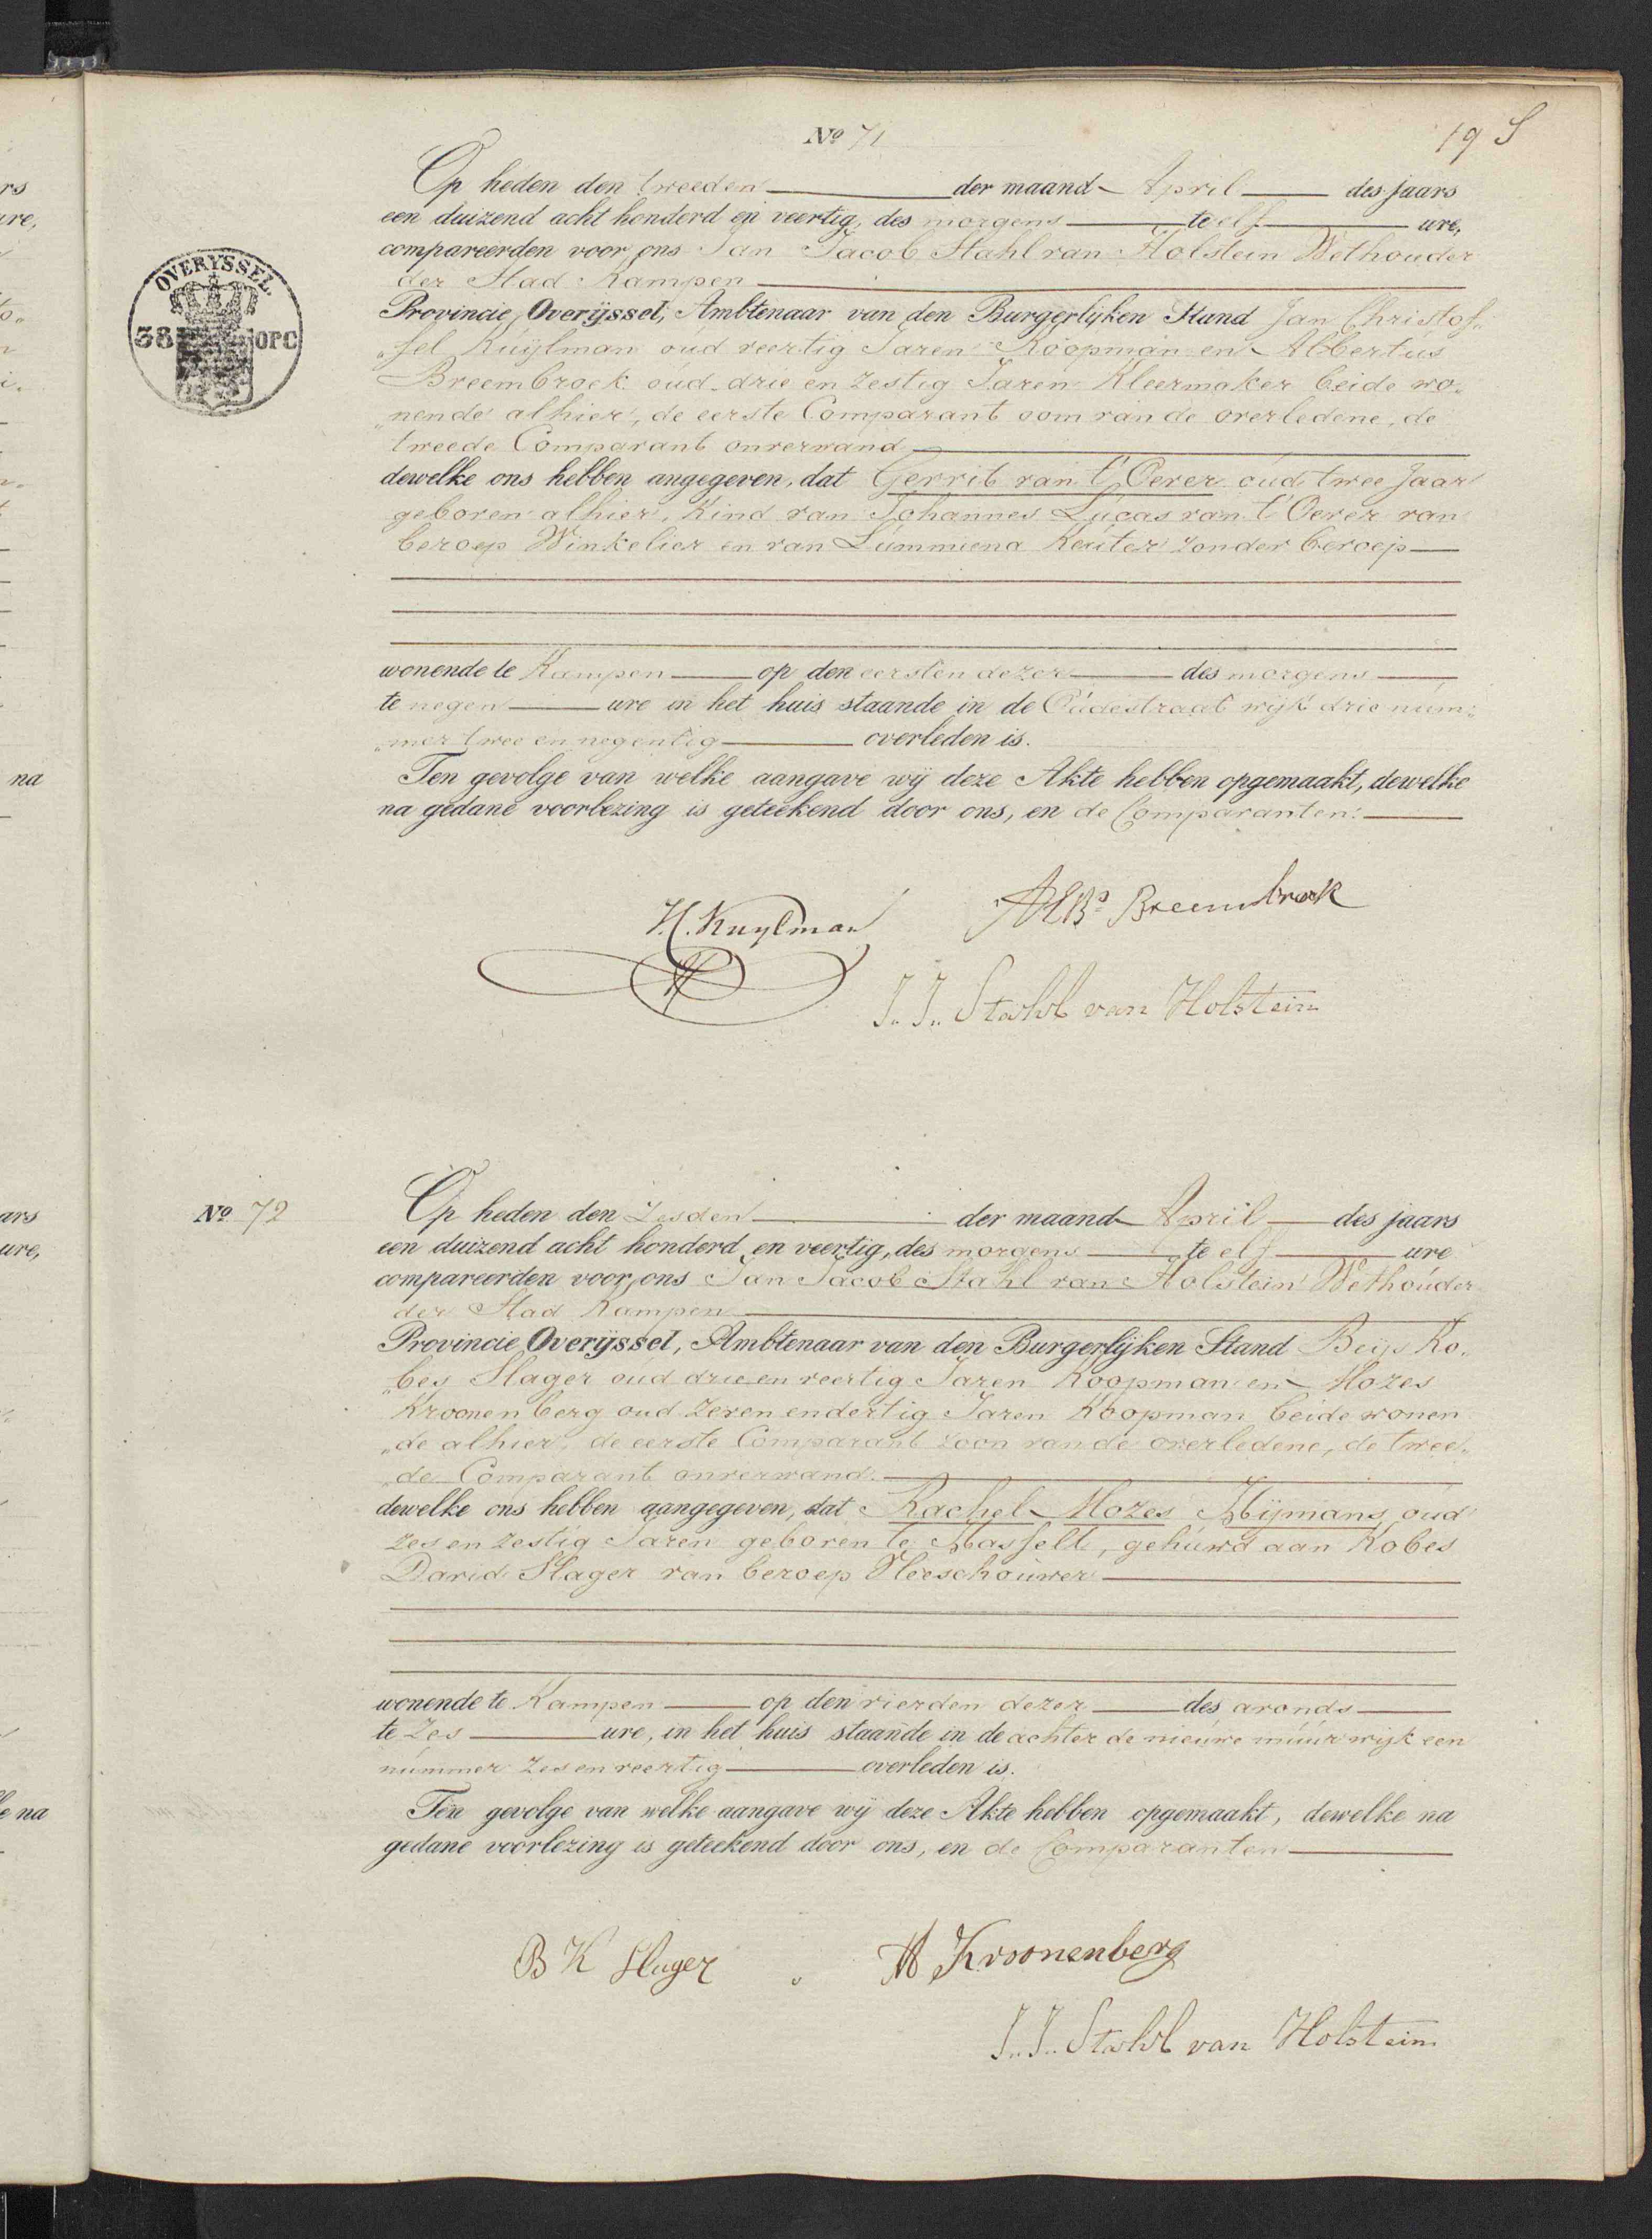 19 S
No 71
Op heden den tweeden der maand April des jaars
een duizend acht honderd en veertig, des morgens te elf ure,
compareerden voor ons Jan Jacob Stahl van Holstein Wethouder
der Stad Kampen
Provincie Overijssel, Ambtenaar van den Burgerlijken Stand Jan Christof„
„fel Kuijlman oud veertig Jaren Koopman en Albertus
Breembroek oud drie en zestig Jaren Kleermaker beide wo„
„nende alhier, de eerste Comparant oom van de overledene, de
tweede Comparant onverwand
dewelke ons hebben angegeven, dat Gerrit van 't Oever oud twee Jaar
geboren alhier, Kind van Johannes Lucas van 't Oever van
beroep Winkelier en van Lummiena Keuter zonder beroep
wonende te Kampen op den eersten dezer des morgens
te negen ure in het huis staande in de Oudestraat wijk drie num„
„mer twee en negentig overleden is.
Ten gevolge van welke aangave wij deze Akte hebben opgemaakt, dewelke
na gedane voorlezing is geteekend door ons, en de Comparanten.
Kuylman Breembroek
J. J. Stahl van Holstein
OVERYSSEL
38 OPC
No 72
Op heden den Zesden der maand April des jaars
een duizend acht honderd en veertig, des morgens te elf ure
compareerden voor ons Jan Jacob Stahl van Holstein Wethouder
der Stad Kampen
Provincie Overijssel, Ambtenaar van den Burgerlijken Stand Ko„
„bes Slager oud drie en veertig Jaren Koopman en Mozes
Kroonenberg oud zeven en dertig Jaren Koopman beide wonen
„de alhier, de eerste Comparant zoon van de overledene, de twee„
„de Comparant onverwand.
dewelke ons hebben aangegeven, dat Rachel Mozes Hijmans oud
zes en zestig Jaren geboren te Hasselt, gehuwd aan Kobes
David Slager van beroep Vleeschouwer
wonende te Kampen op den vierden dezer des avonds
te zes ure, in het huis staande in de achter de nieuwe muur wijk een
nummer zes en veertig overleden is.
Ten gevolge van welke aangave wij deze Akte hebben opgemaakt, dewelke na
gedane voorlezing is geteekend door ons, en de Comparanten
B K Slager M Kroonenberg
J. J. Stahl van Holstein